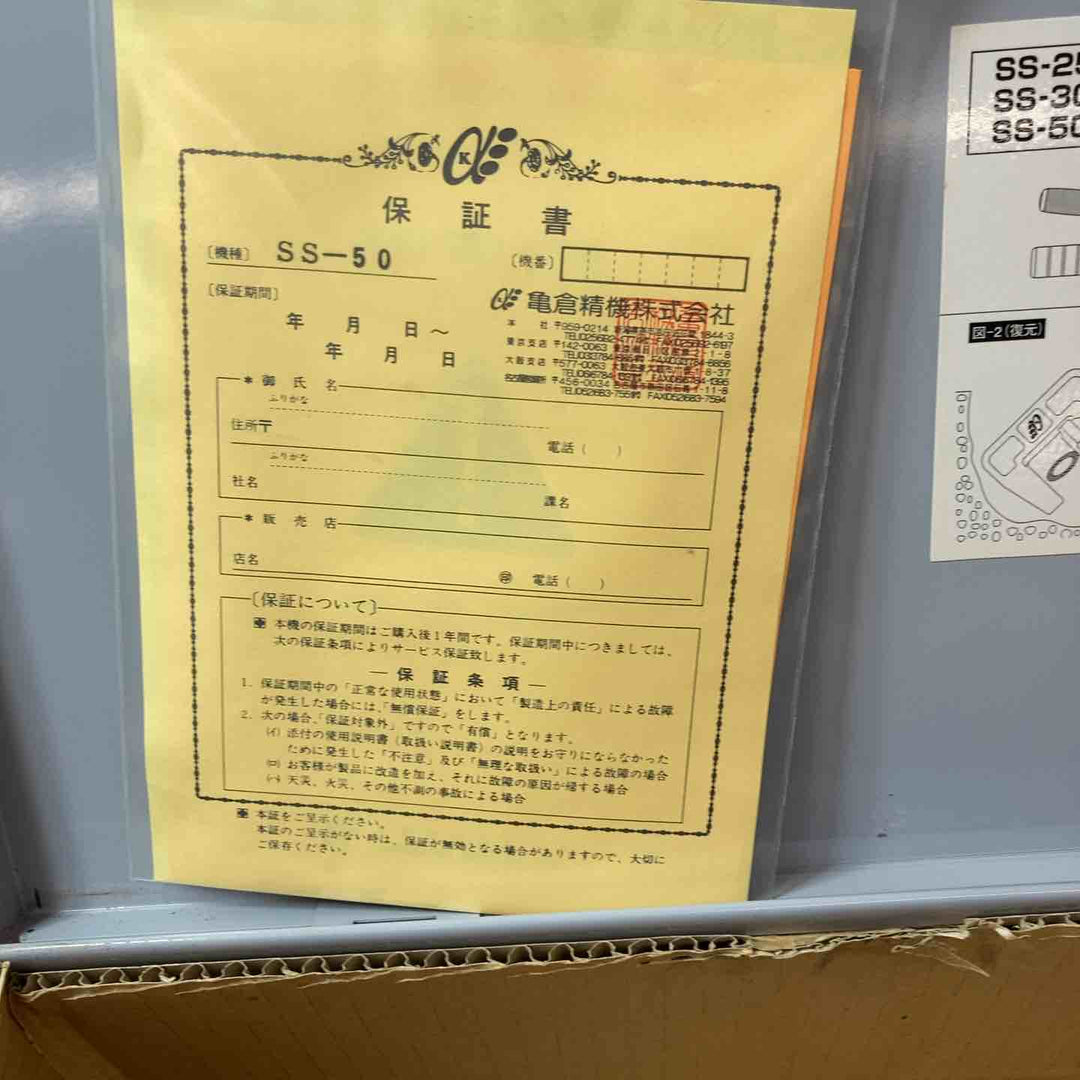 K
保証書
〔機種〕 SS—50
〔機番〕
〔保証期間〕
年 月 日〜
年 月 日
亀倉精機株式会社
本 社 〒959-0214
東京支店 〒142-0063
大阪支店 〒577-0063
〒456-0034
＊御氏名
ふりがな
住所〒
電話（ ）
ふりがな
社名
課名
＊販売店
店名
㊞ 電話（ ）
〔保証について〕
本機の保証期間はご購入後1年間です。保証期間中につきましては、
次の保証条項によりサービス保証致します。
—保証条項—
1. 保証期間中の「正常な使用状態」において「製造上の責任」による故障
が発生した場合には、「無償保証」をします。
2. 次の場合、「保証対象外」ですので「有償」となります。
(イ) 添付の使用説明書（取扱い説明書）の説明をお守りにならなかった
ために発生した「不注意」及び「無理な取扱い」による故障の場合
(ロ) お客様が製品に改造を加え、それに故障の原因が帰する場合
(ハ) 天災、火災、その他不測の事故による場合
本証をご呈示ください。
本証のご呈示がない時は、保証が無効となる場合がありますので、大切に
ご保存ください。
SS-25
SS-30
SS-50
図-2(復元)